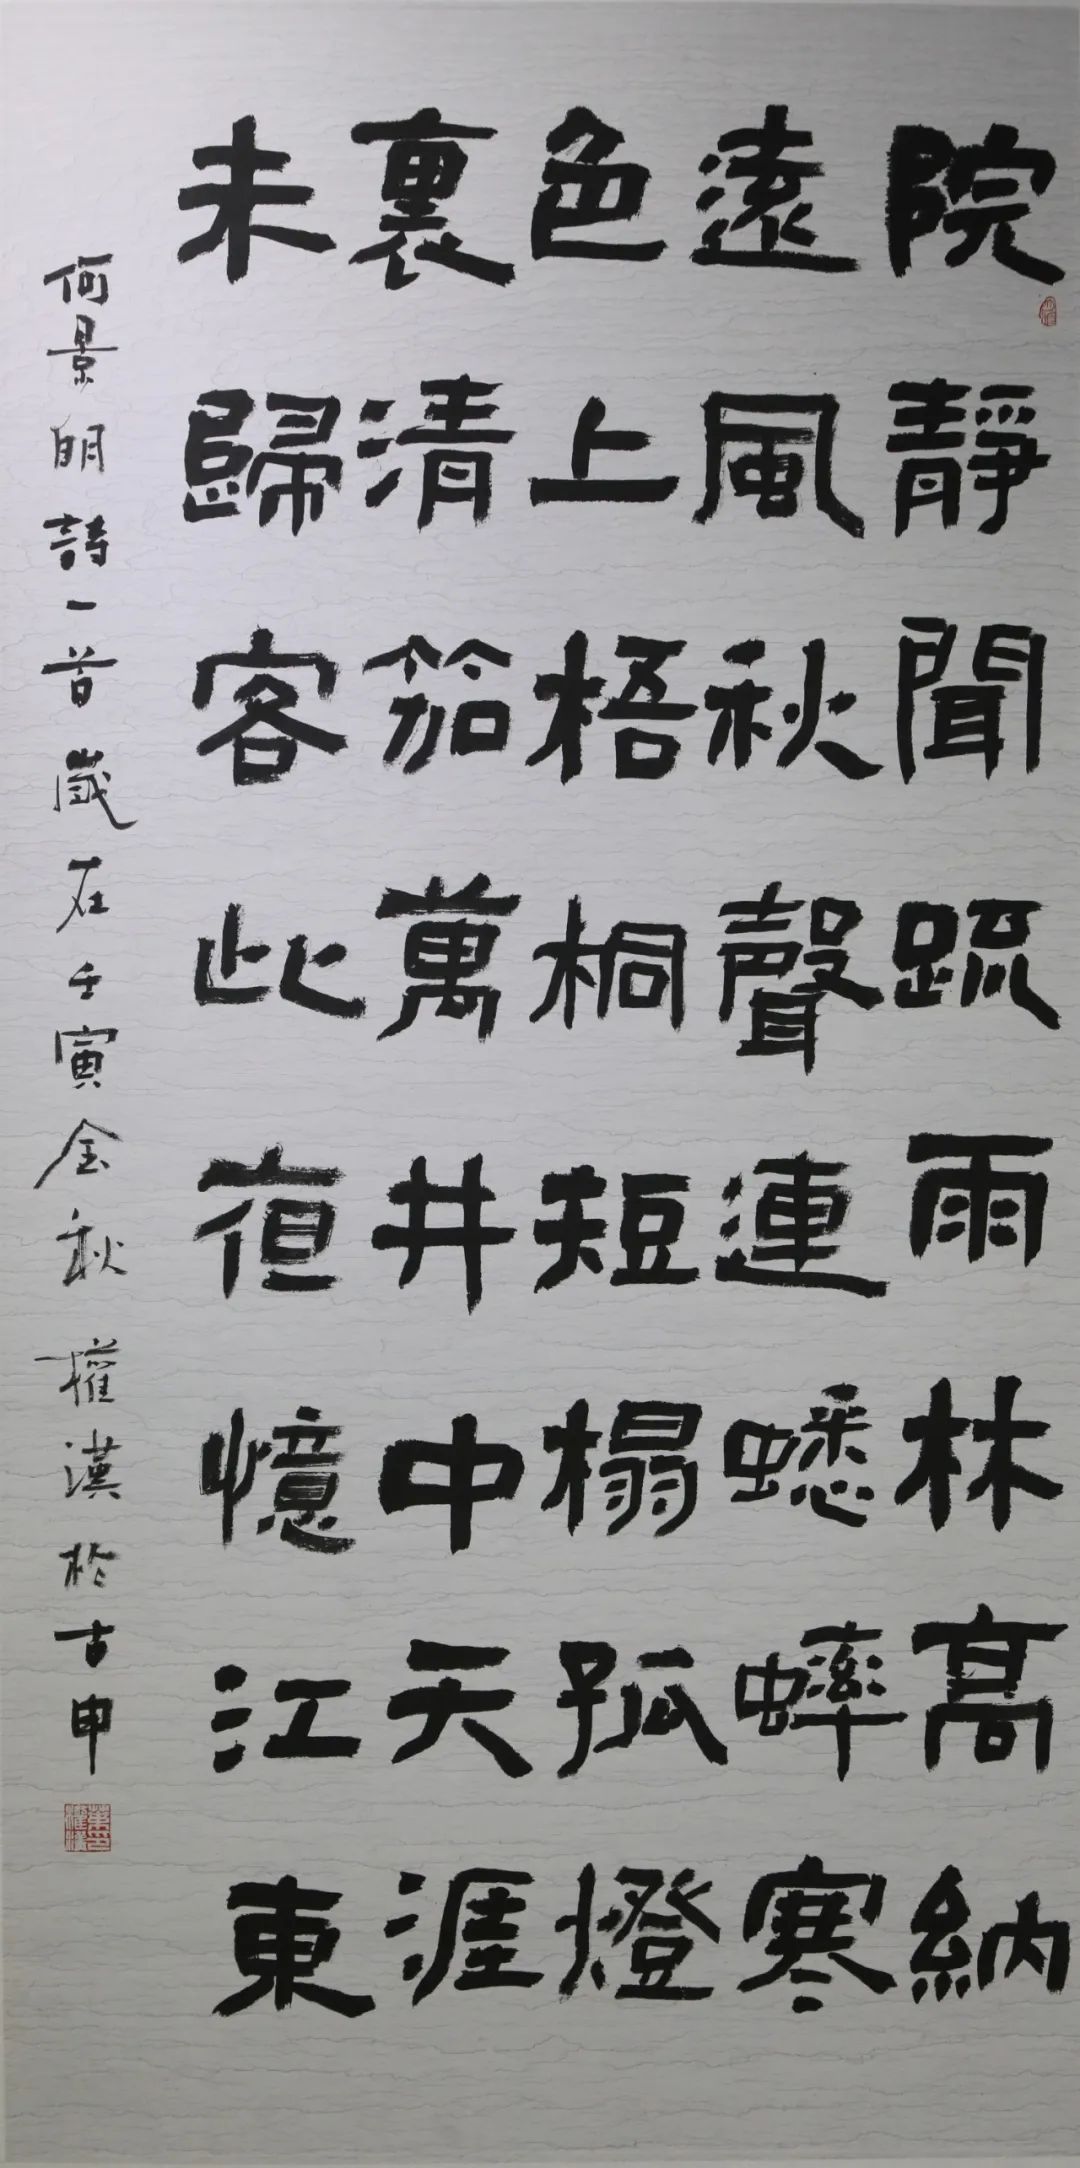 院靜聞疏雨林高納
遠風秋聲連蟋蟀寒
色上梧桐短榻孤燈
裏清笳萬井中天涯
未歸客此夜憶江東
何景明詩一首歲在壬寅金秋權漢於古申